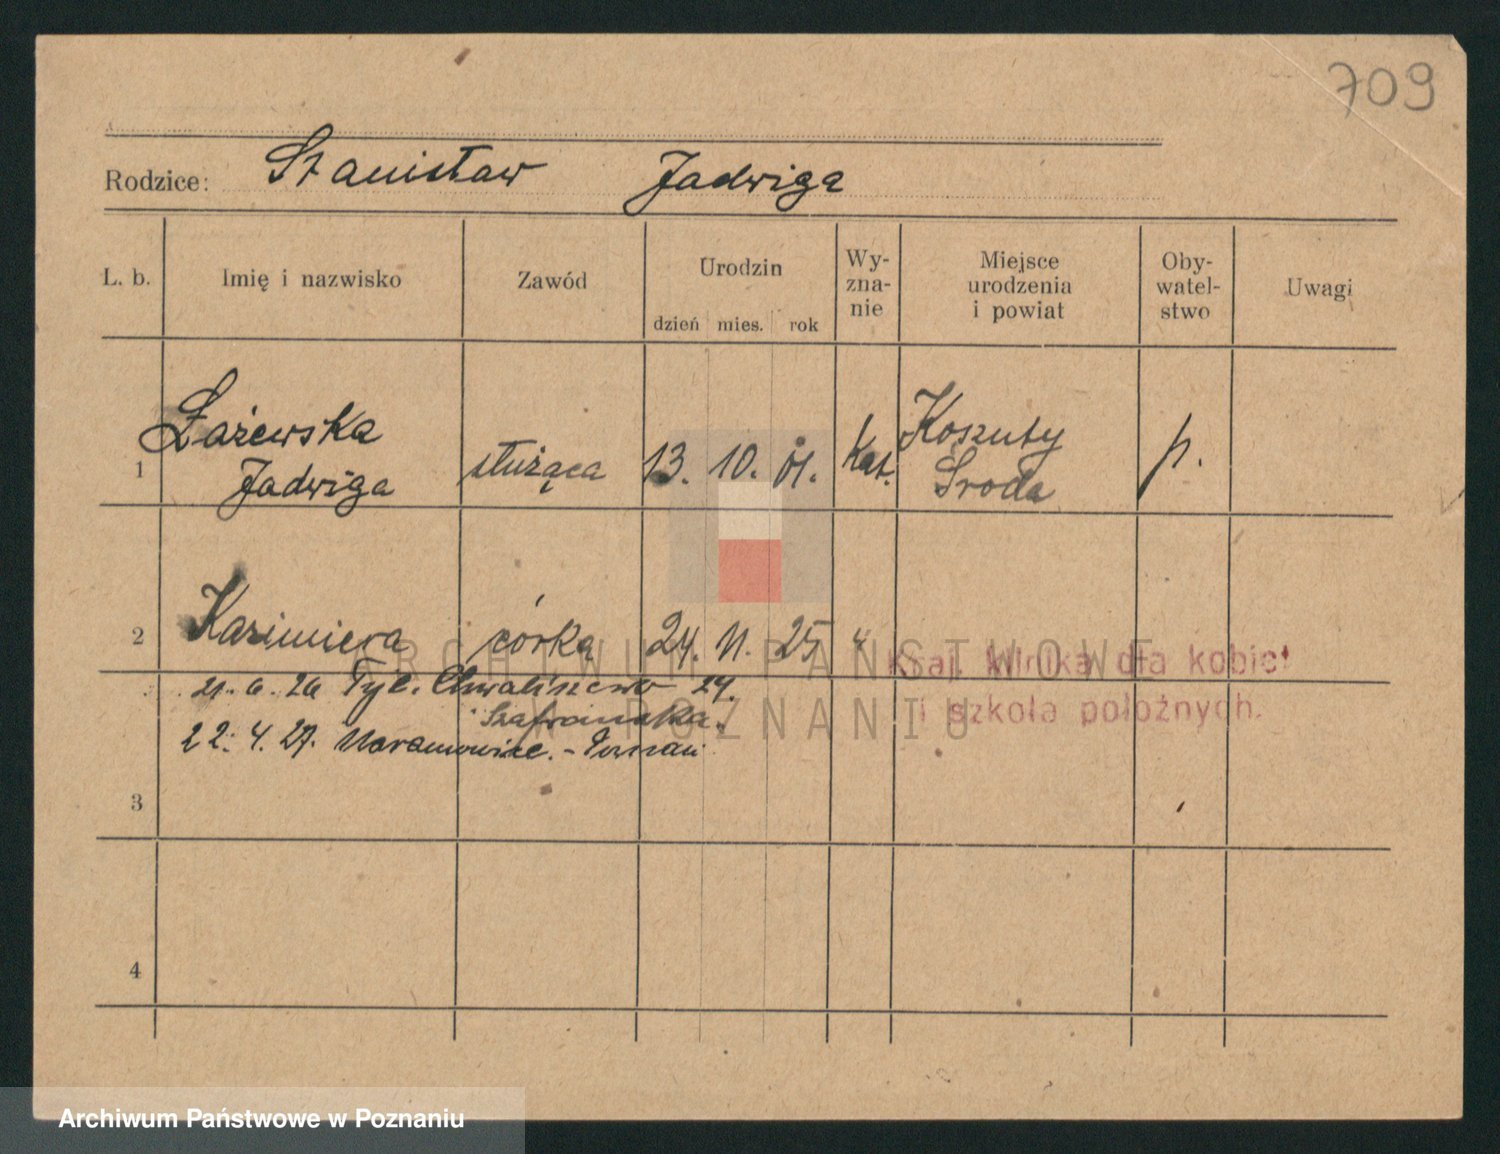 709
Rodzice: Stanisław Jadwiga
L. b. Imię i nazwisko Zawód Urodzin dzień mies. rok Wy-zna-nie Miejsce urodzenia i powiat Oby-watel-stwo Uwagi
1 Łażewska Jadwiga służąca 13. 10. 01. Kat. Koszuty Środa p.
2 Kazimiera córka 24. 11. 25 "
21. 6. 26 Tyl. Chwaliszewo 24.
Szafrańska.
22. 4. 27. Naramowice. - Poznań
Kraj. klinika dla kobiet
i szkoła położnych.
3
4
ARCHIWUM PAŃSTWOWE
W POZNANIU
Archiwum Państwowe w Poznaniu